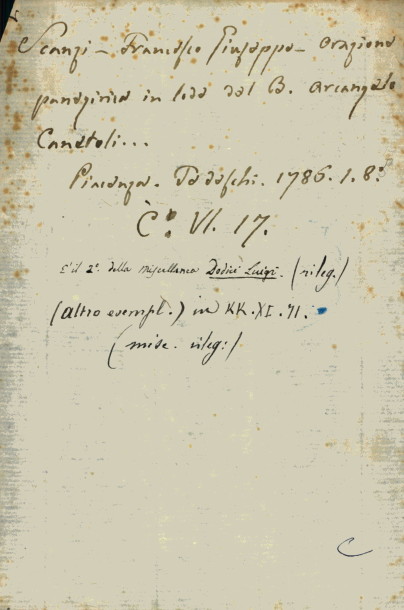 Scanzi - Francesco Giuseppe - Orazione
panegirica in lode del B. Arcangelo
Canetoli...
Piacenza. Tedeschi. 1786. 1. 8.º
C.º VI. 17.
E' il 2º della miscellanea Dodici Luigi. (rileg.)
(altro esempl.) in KK. XI. 71.
(misc. rileg.)
C